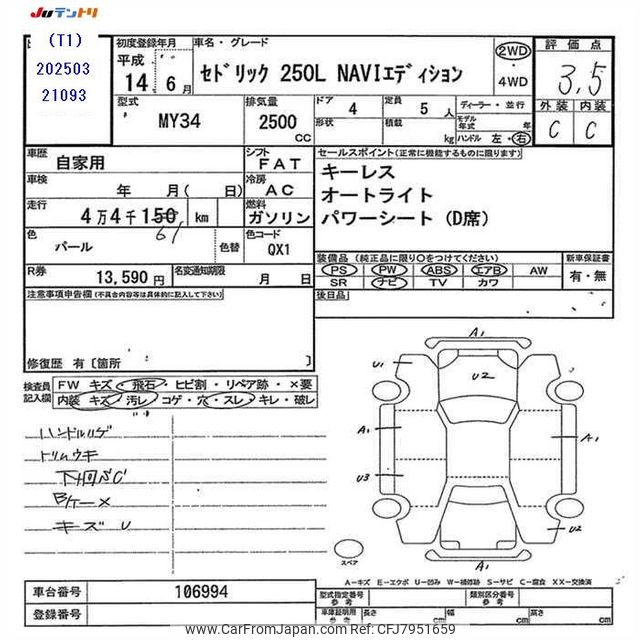 JUテントリ
(T1)
202503
21093
初度登録年月
平成
14 6月
車名・グレード
セドリック 250L NAVIエディション
2WD
・
4WD
評価点
3.5
外装 内装
C C
型式
MY34
排気量
2500
cc
ドア 4
形状
定員 5人
積載 kg
ディーラー・並行
モデル年式 年
ハンドル 左・右
車歴
自家用
シフト
FAT
車検
年 月( 日)
冷房
AC
走行
4万4千150 km
61
燃料
ガソリン
色
パール
色替
色コード
QX1
R券
13,590円
名変通知期限
月 日
セールスポイント(正常に機能するものに限ります)
キーレス
オートライト
パワーシート(D席)
装備品(純正品に限り○をつけてください)
PS PW ABS エアB AW
SR ナビ TV カワ
新車保証書
有・無
後日品
注意事項申告欄(不具合内容等は具体的に記入して下さい)
修復歴 有〔箇所 〕
検査員記入欄
FW キズ・飛石・ヒビ割・リペア跡・×要
内装 キズ・汚レ・コゲ・穴・スレ・キレ・破レ
ハンドルハゲ
トリムウキ
下回SC
Bケーメ
キズ U
A1
U1
U2
A1
A1
U3
U2
A1
スペア
A-キズ E-エクボ U-凹み W-補修跡 S-サビ C-腐食 XX-交換済
車台番号
106994
登録番号
型式指定番号
参考
類別区分番号
参考
車庫証明用
参考
長さ cm
幅 cm
高さ cm
www.CarFromJapan.com Ref:CFJ7951659